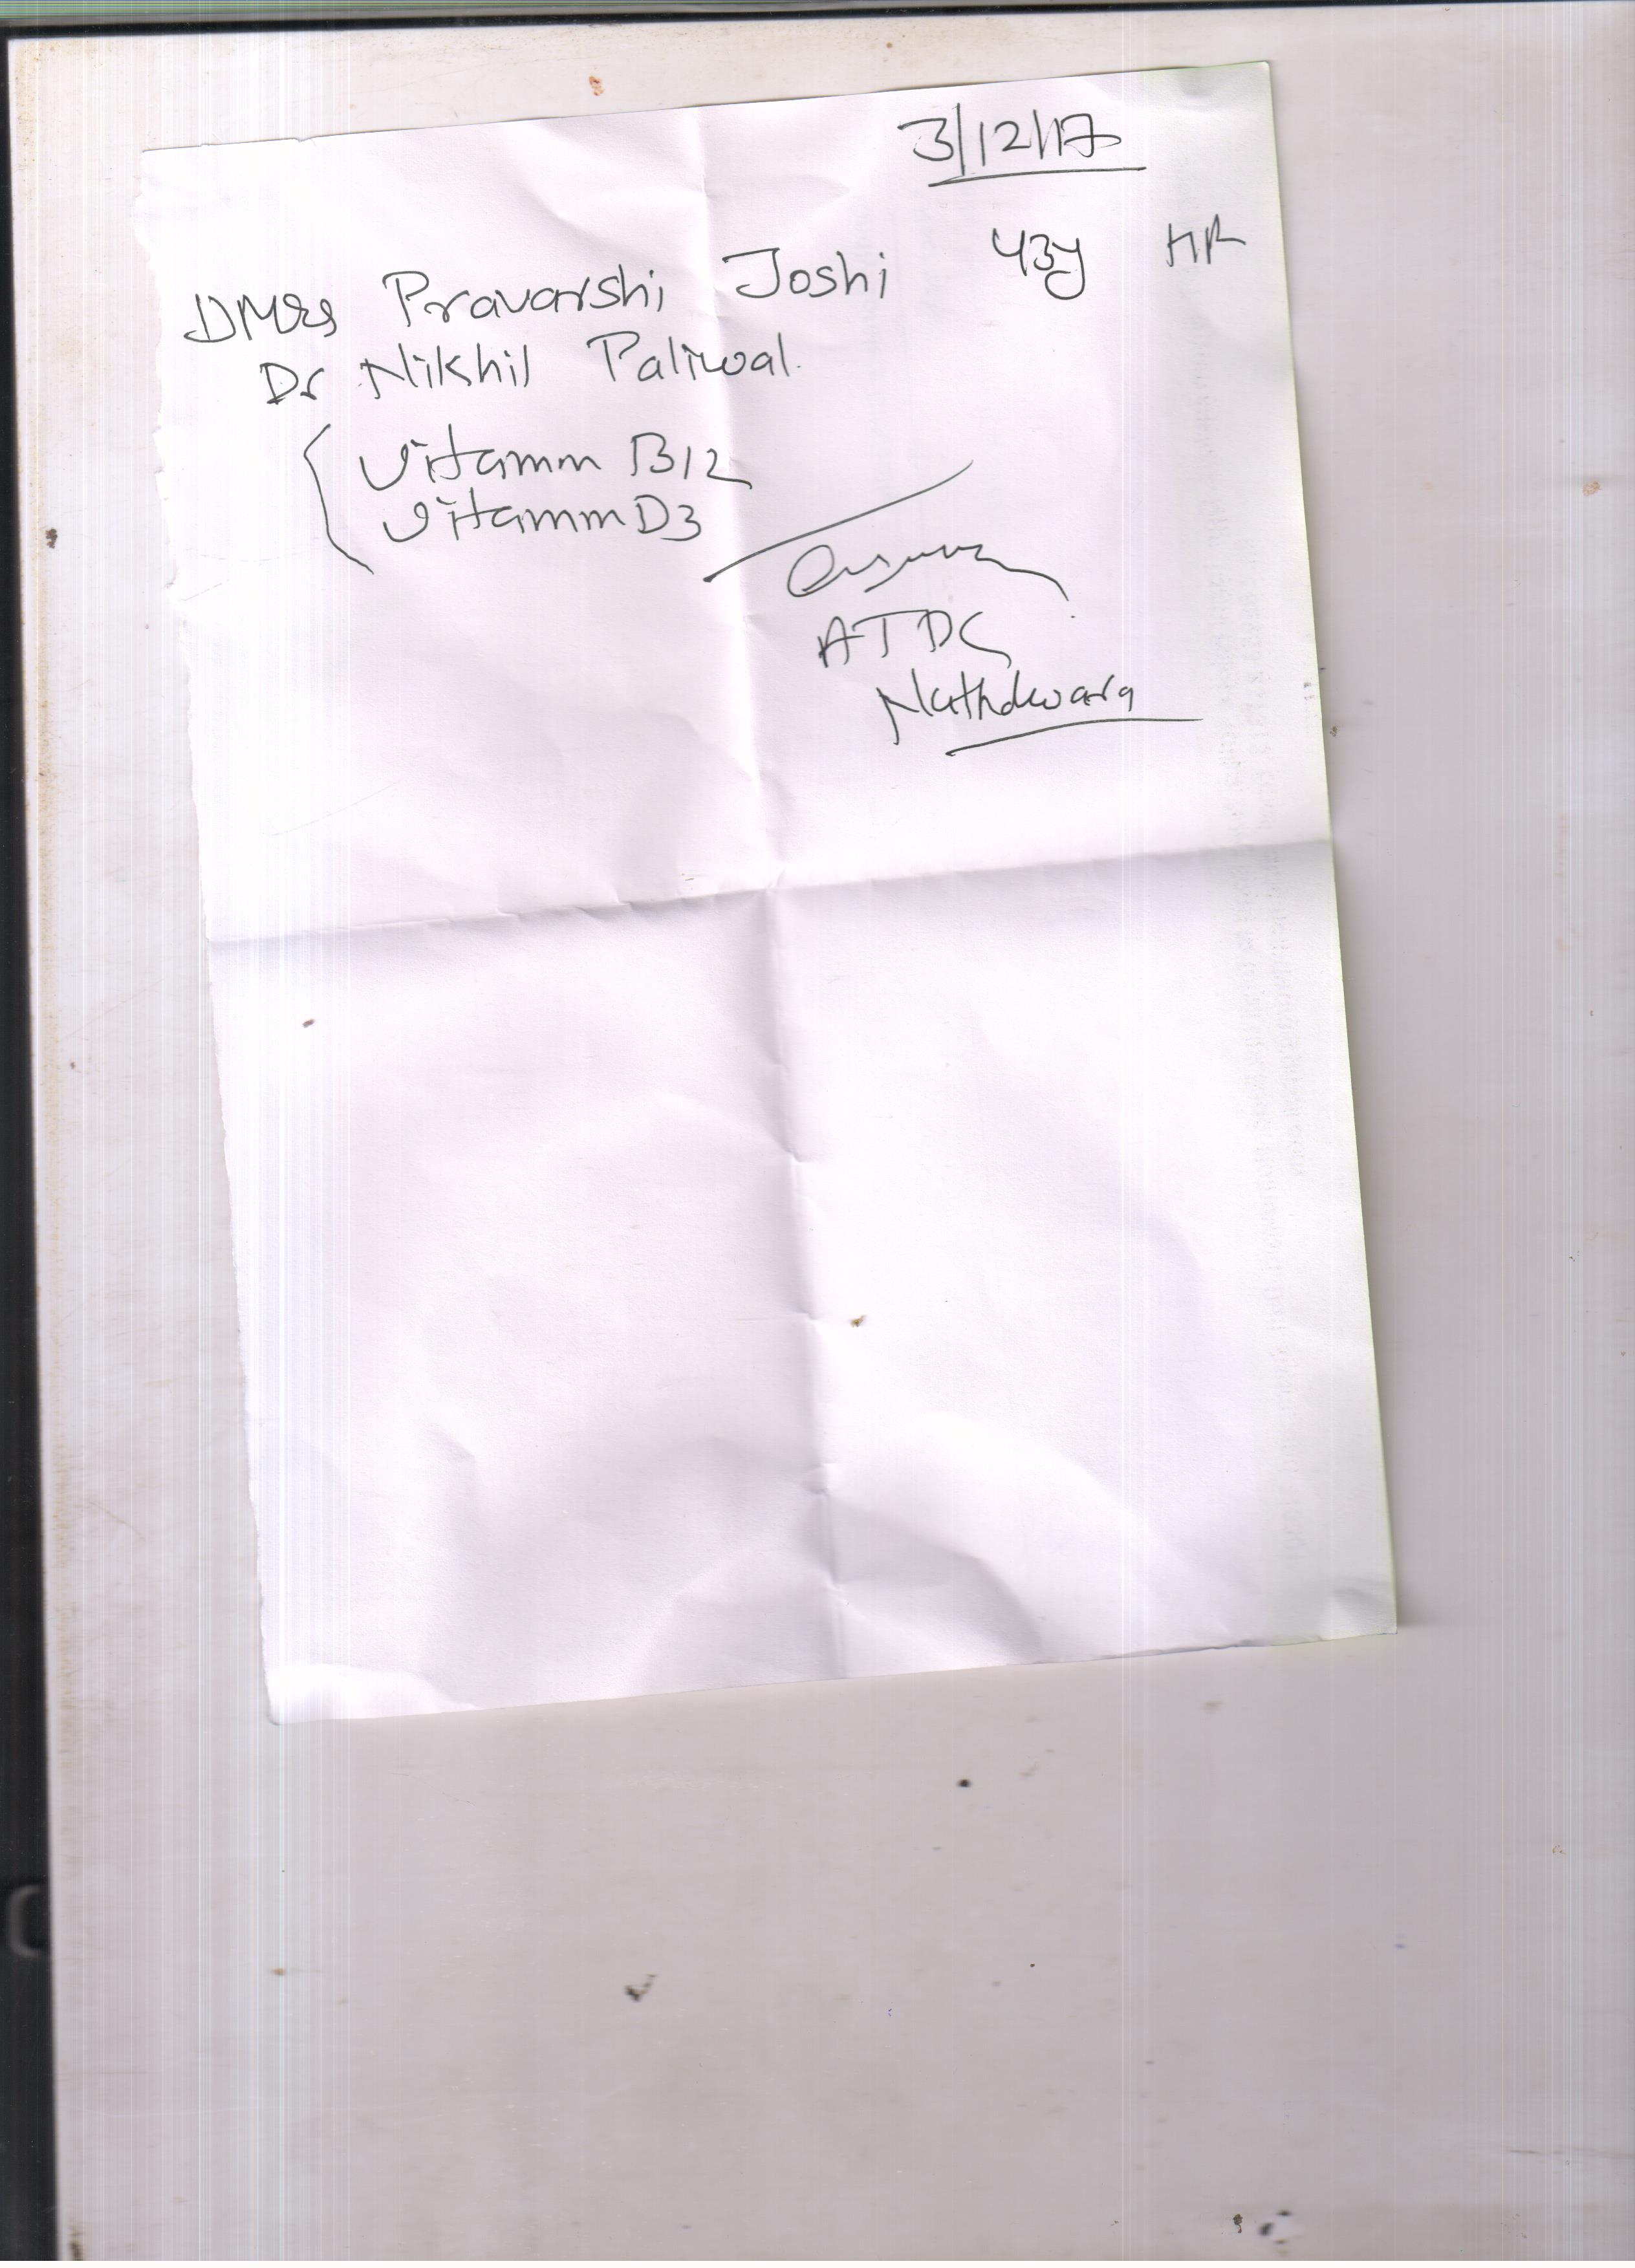 3/12/17
Mrs Pravarshi Joshi 43y
Dr Nikhil Paliwal.
Vitamin B12
Vitamin D3
ATDC
Nathdwara